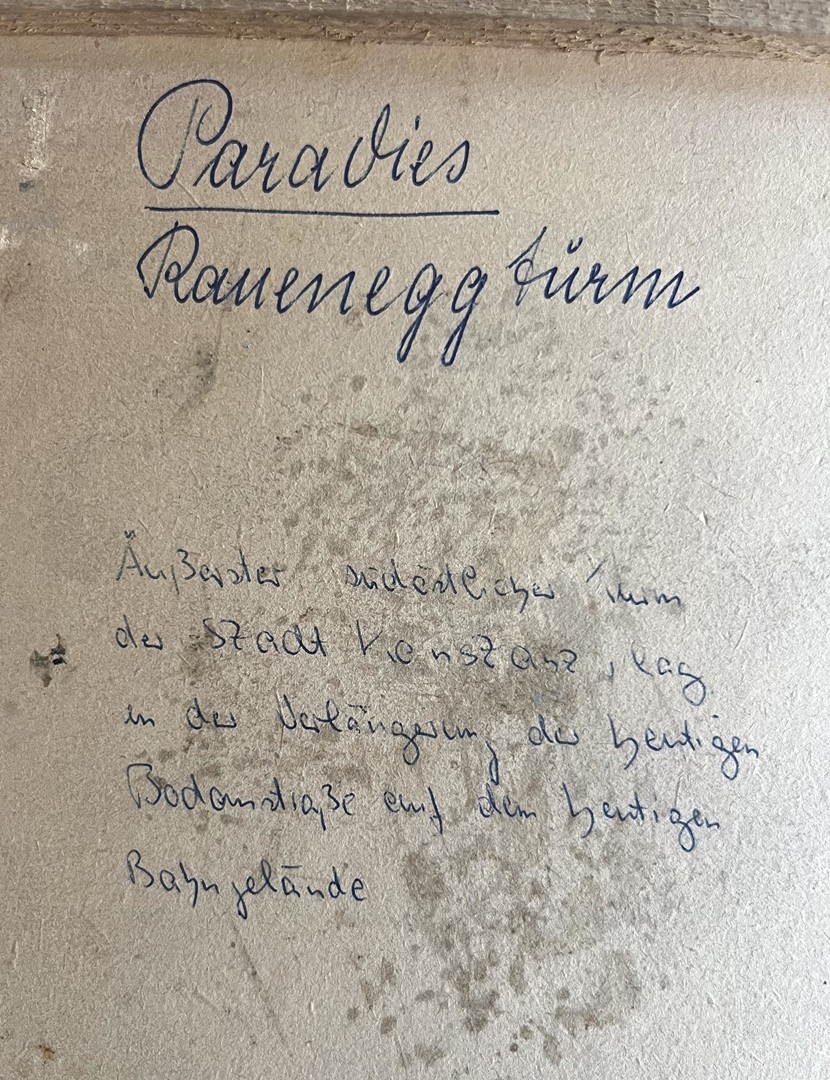 Paradies
Raueneggturm
Äußerster südöstlicher Turm
der Stadt Konstanz, lag
in der Verlängerung der heutigen
Bodanstraße auf dem heutigen
Bahngelände